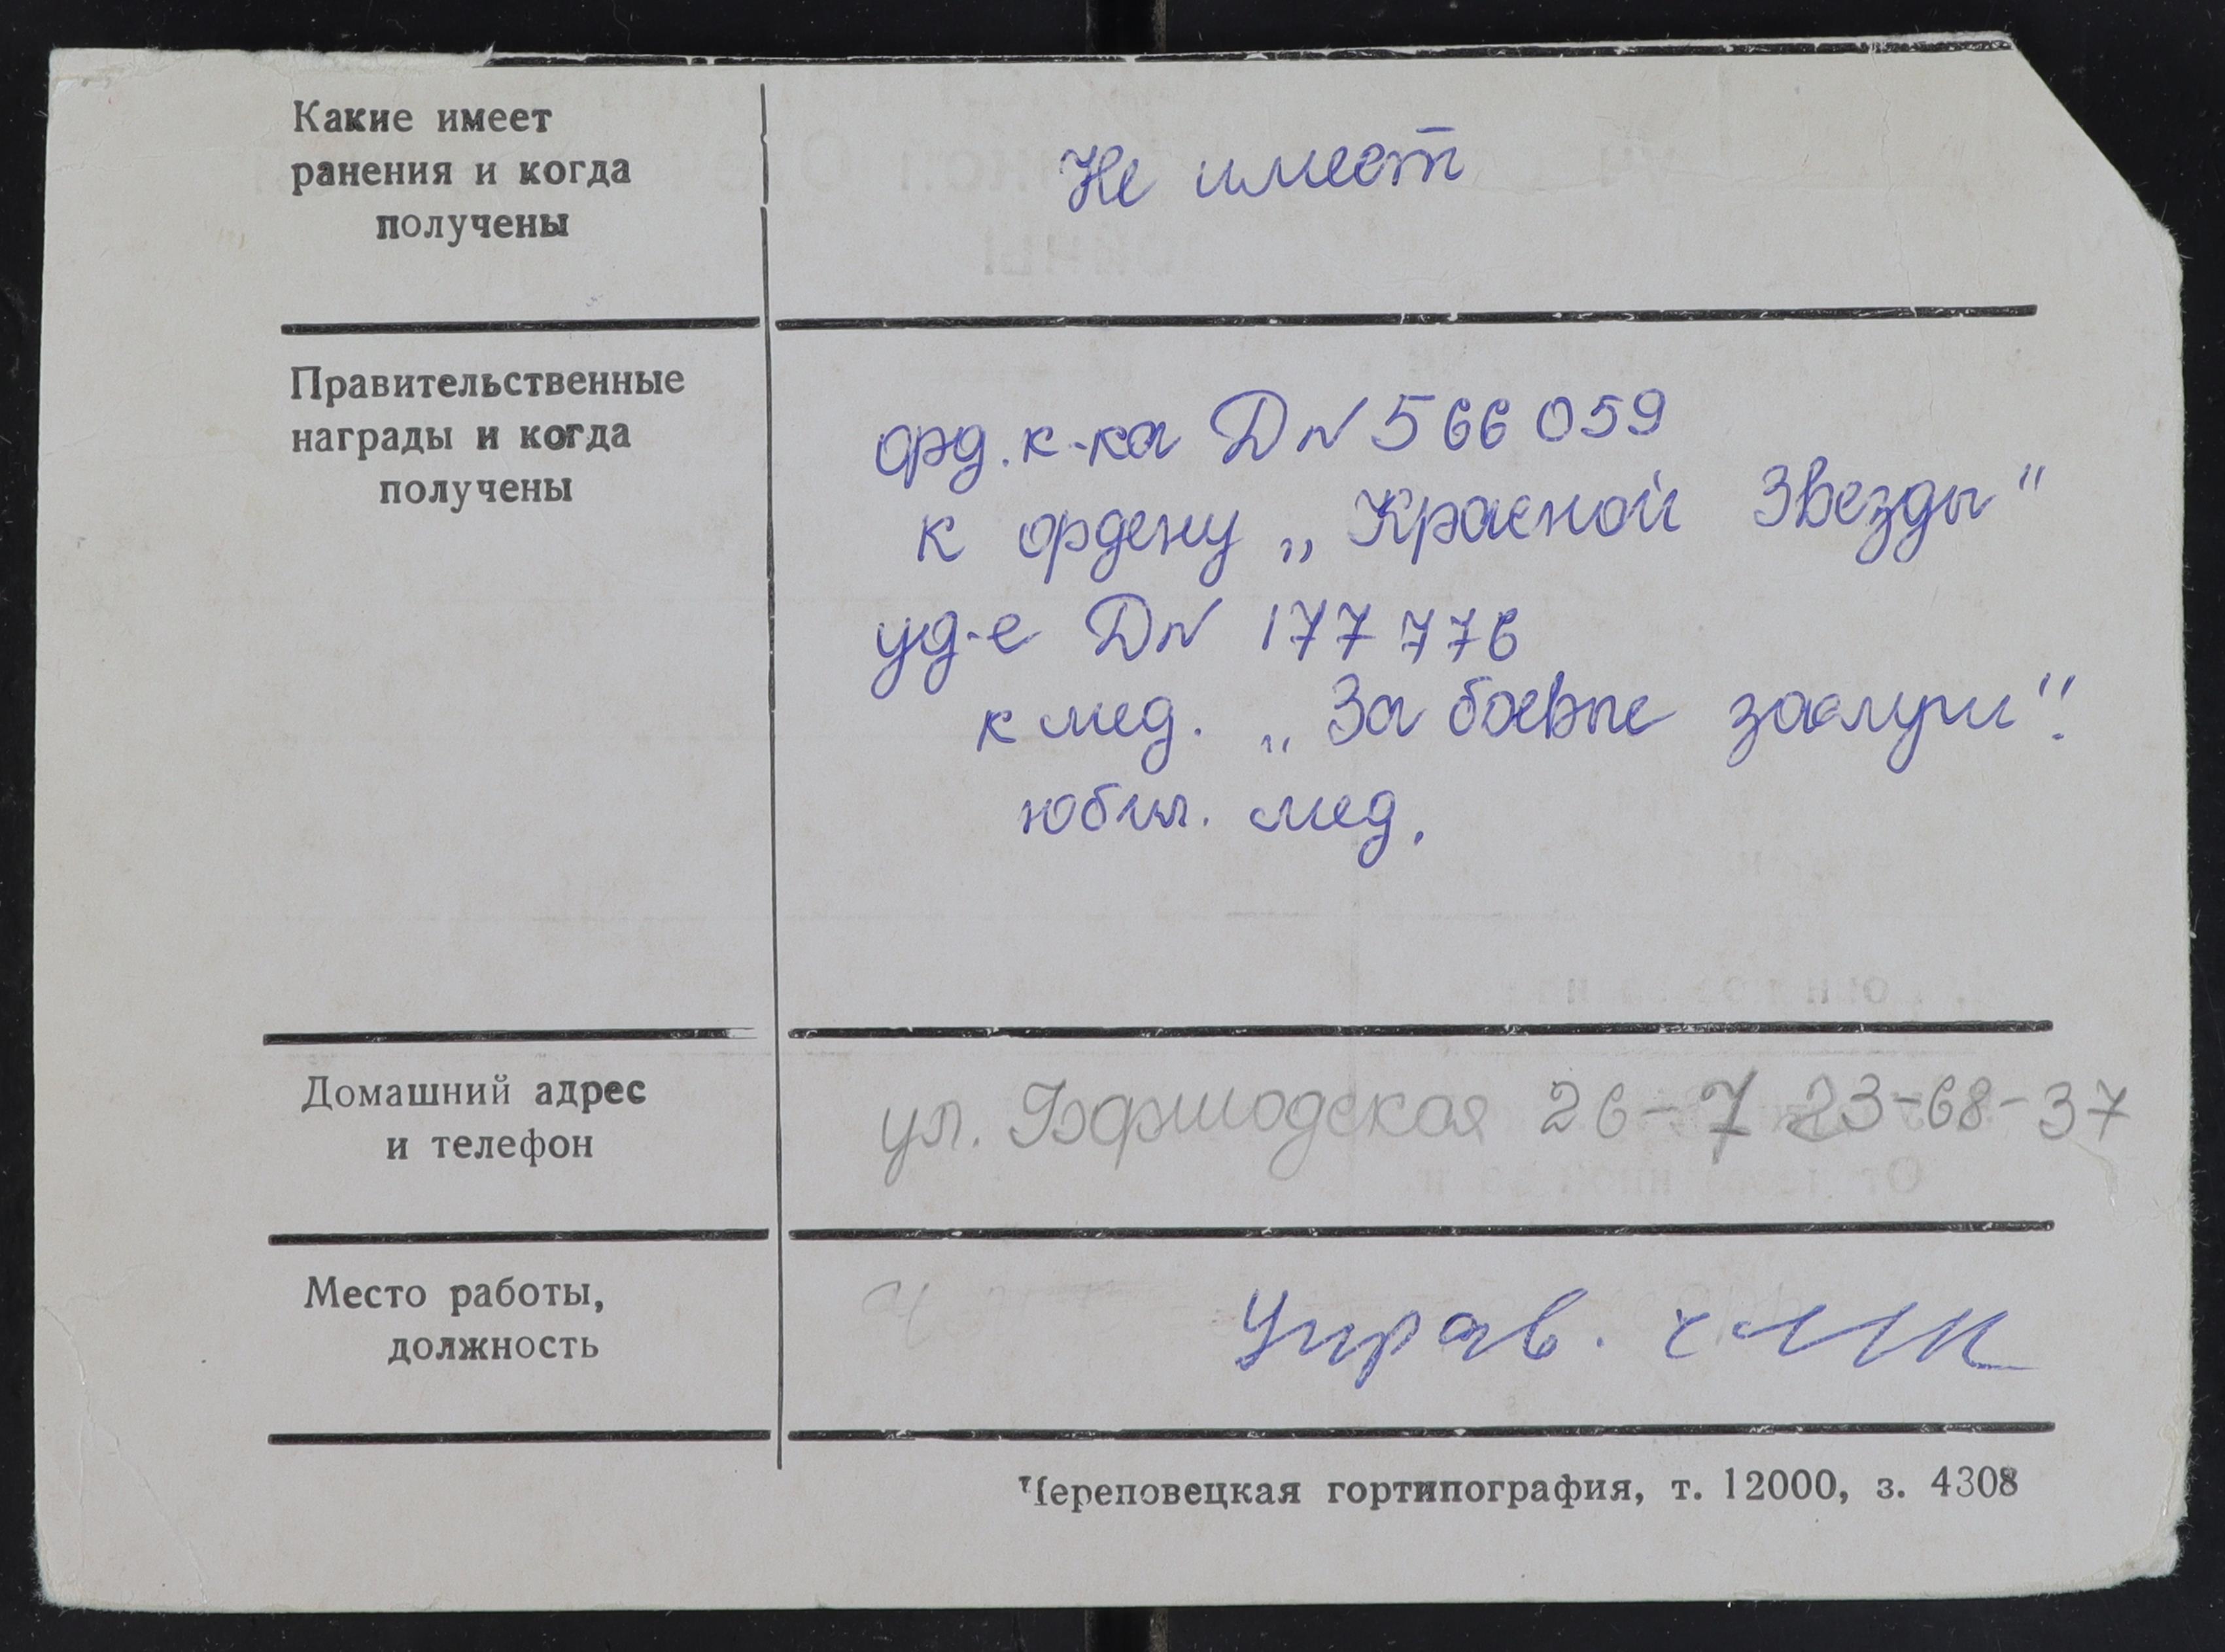 Какие имеет
ранения и когда
получены
Не имеет
Правительственные
награды и когда
получены
орд. к-ка Д№ 566 059
к ордену „Красной Звезды"
уд-е Д№ 177 776
к мед. „За боевые заслуги".
юбил. мед.
Домашний адрес
и телефон
ул. Бабушкинская 26-7 23-68-37
Место работы,
должность
Управ. ЧМК
Череповецкая гортипография, т. 12000, з. 4308